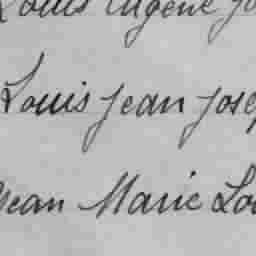 Louis Eugène Jo
Louis Jean Josep
Jean Marie Lou